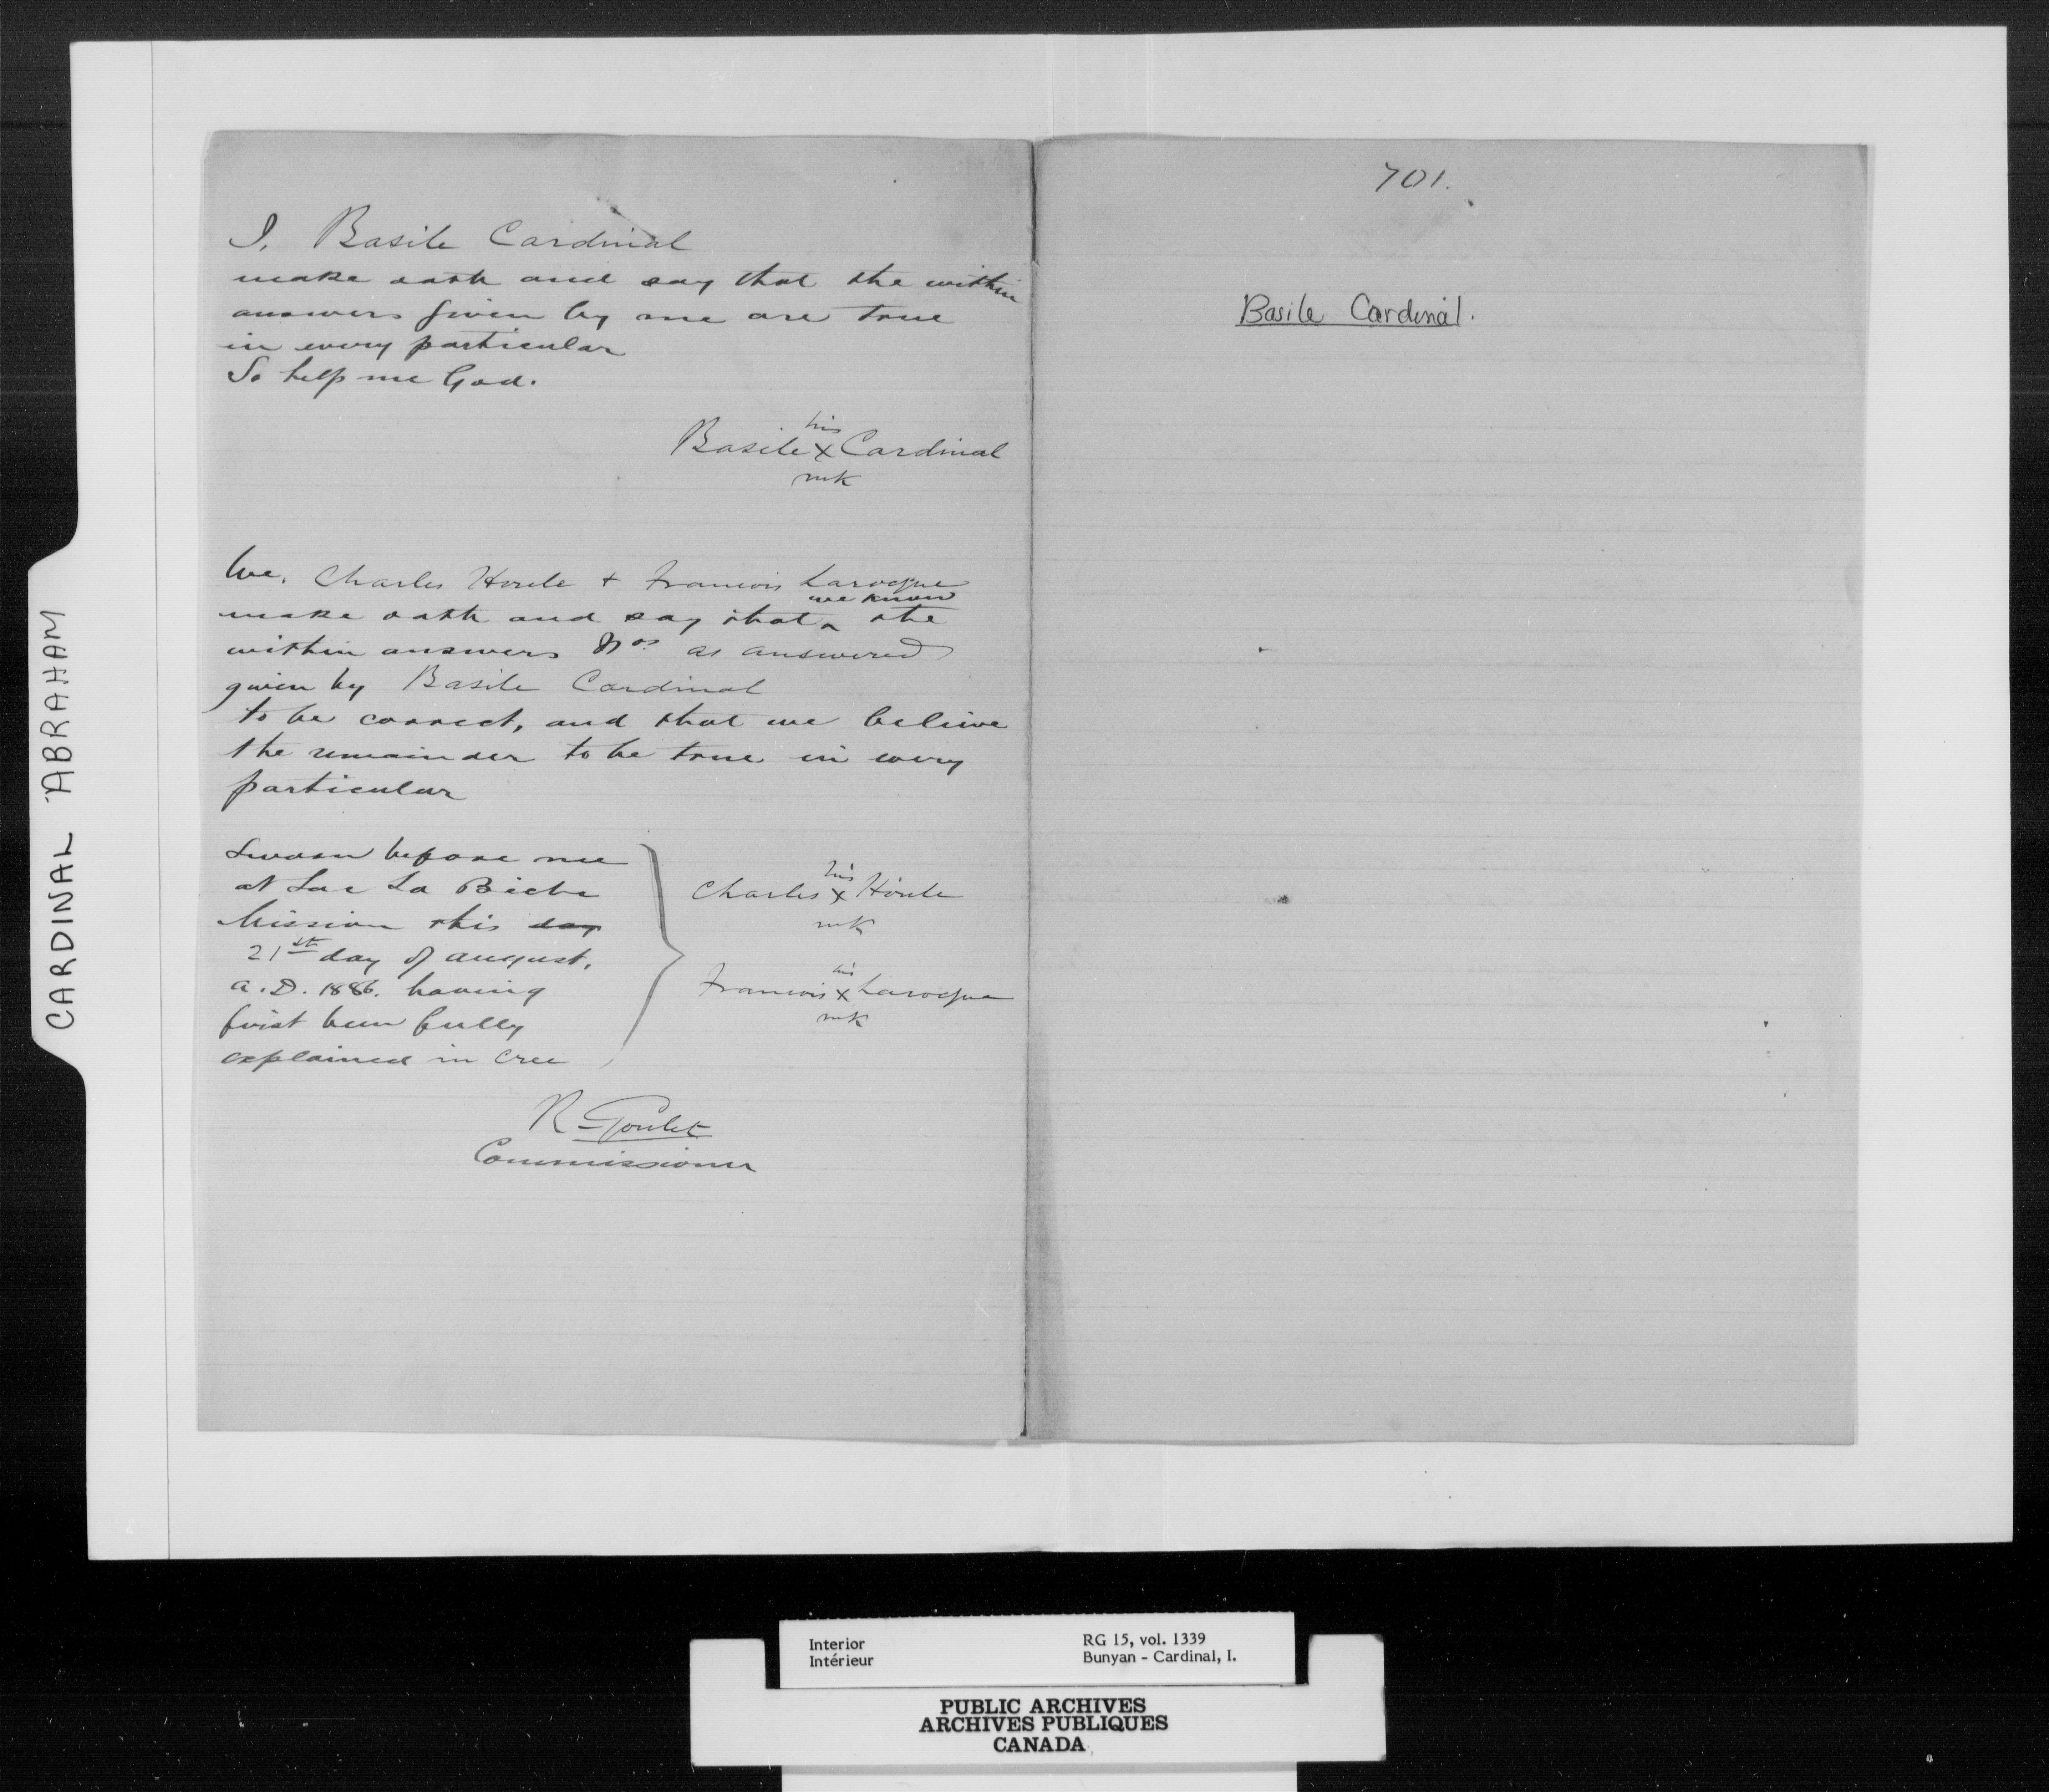 I, Basile Cardinal
make oath and say that the within
answers given by me are true
in every particular
So help me God.
his
Basile x Cardinal
mk
We, Charles Houle + Francois Larocque
we know
make oath and say that ‸ the
within answers Nos as answered
given by Basile Cardinal
to be correct, and that we believe
the remainder to be true in every
particular
Sworn before me
at Lac La Biche
Mission this day
21st day of August,
A.D. 1886. having
first been fully
explained in Cree
his
Charles x Houle
mk
his
Francois x Larocque
mk
R Goulet
Commissioner
701.
Basile Cardinal.
CARDINAL ABRAHAM
Interior
Intérieur
RG 15, vol. 1339
Bunyan - Cardinal, I.
PUBLIC ARCHIVES
ARCHIVES PUBLIQUES
CANADA